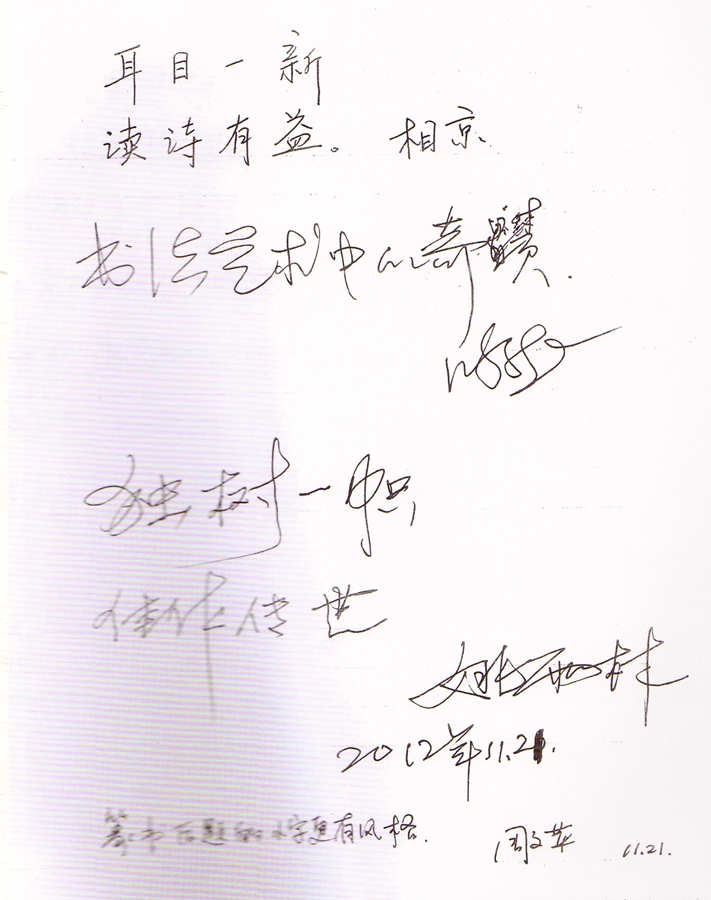 耳目一新
读诗有益。 相京
书法艺术中的奇
独树一帜
佳作传世
2012年11.21.
篆书后题的小字更有风格. 周文 11.21.